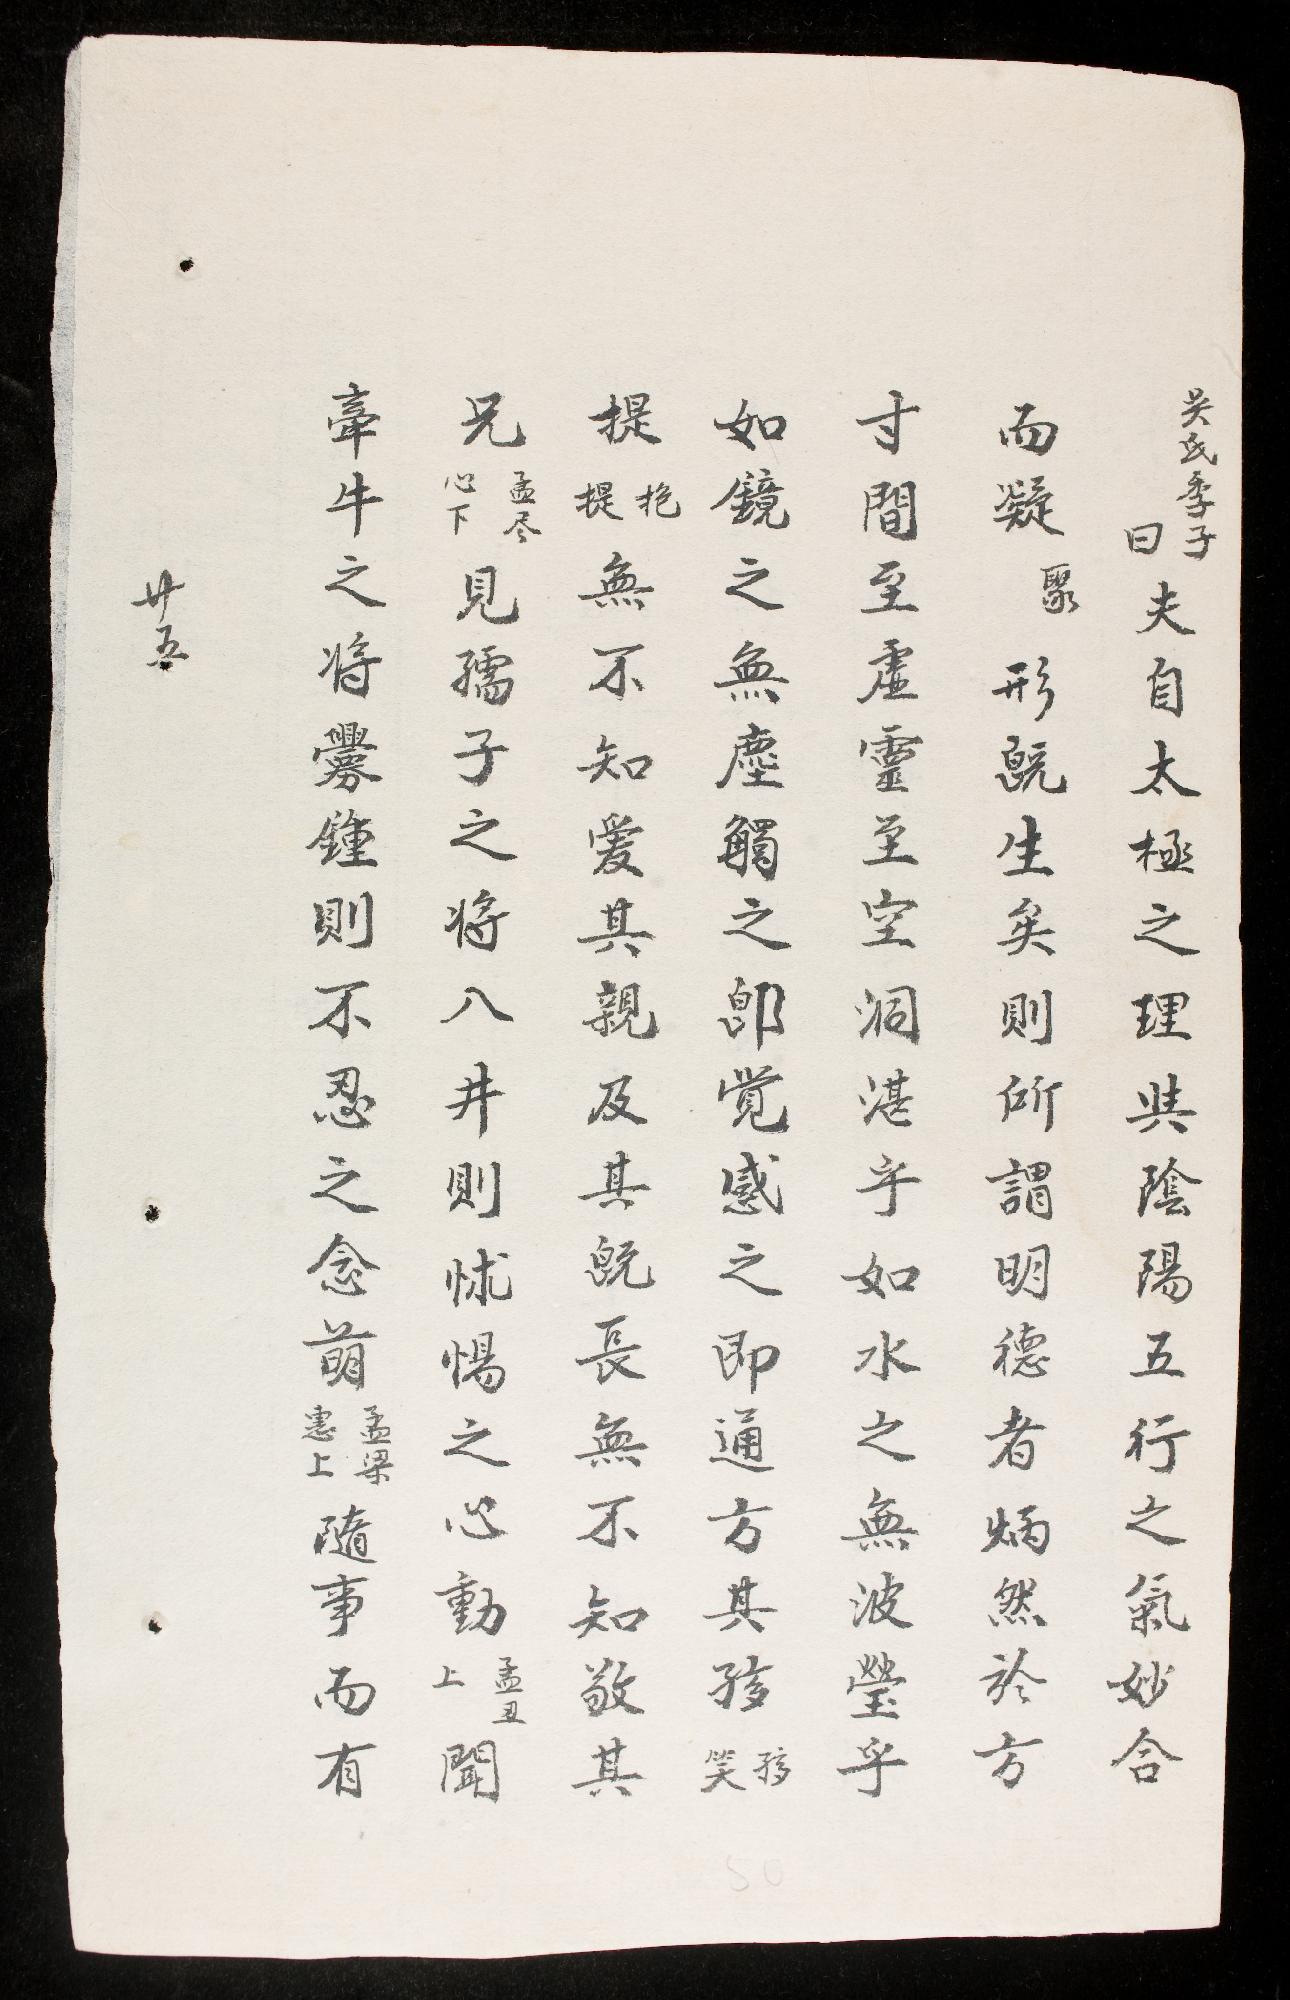 吴氏季子曰夫自太極之理與陰陽五行之氣妙合
而凝聚形旣生矣則所謂明德者炳然於方
寸間至虛靈至空洞湛乎如水之無波瑩乎
如鏡之無塵觸之卽覺感之即通方其孩孩笑
提抱提無不知愛其親及其旣長無不知敬其
兄孟尽心下見孺子之将入井則怵惕之心動孟丑上聞
牽牛之将釁鍾則不忍之念萌孟梁惠上隨事而有
廿五
50